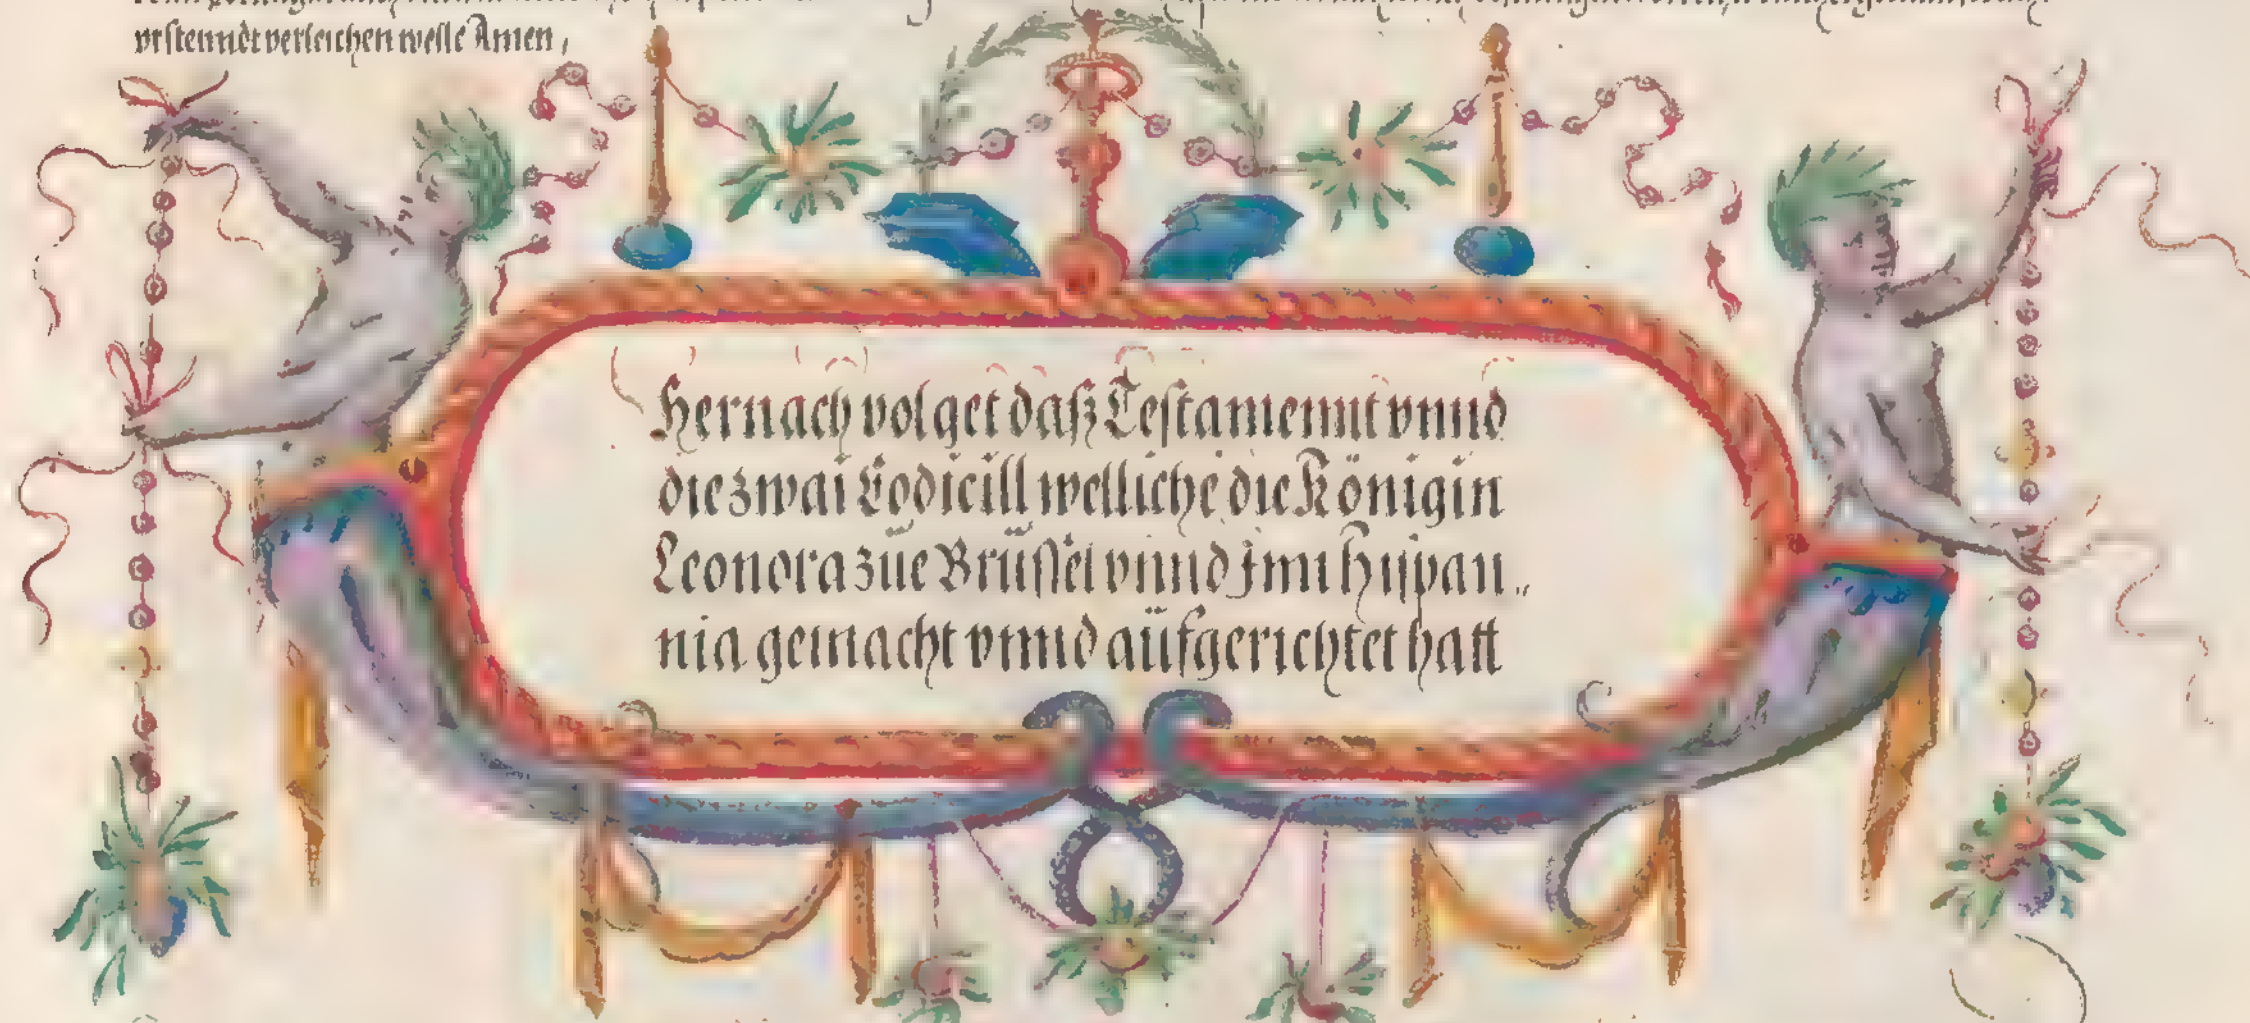 vrstenndt verleichen welle Amen,
Hernach volget daß Testamennt vnnd
die zwai Codicill welliche die Königin
Leonora züe Brüssel vnnd jnn Hispan„
nia gemacht vnnd aüfgerichtet hatt